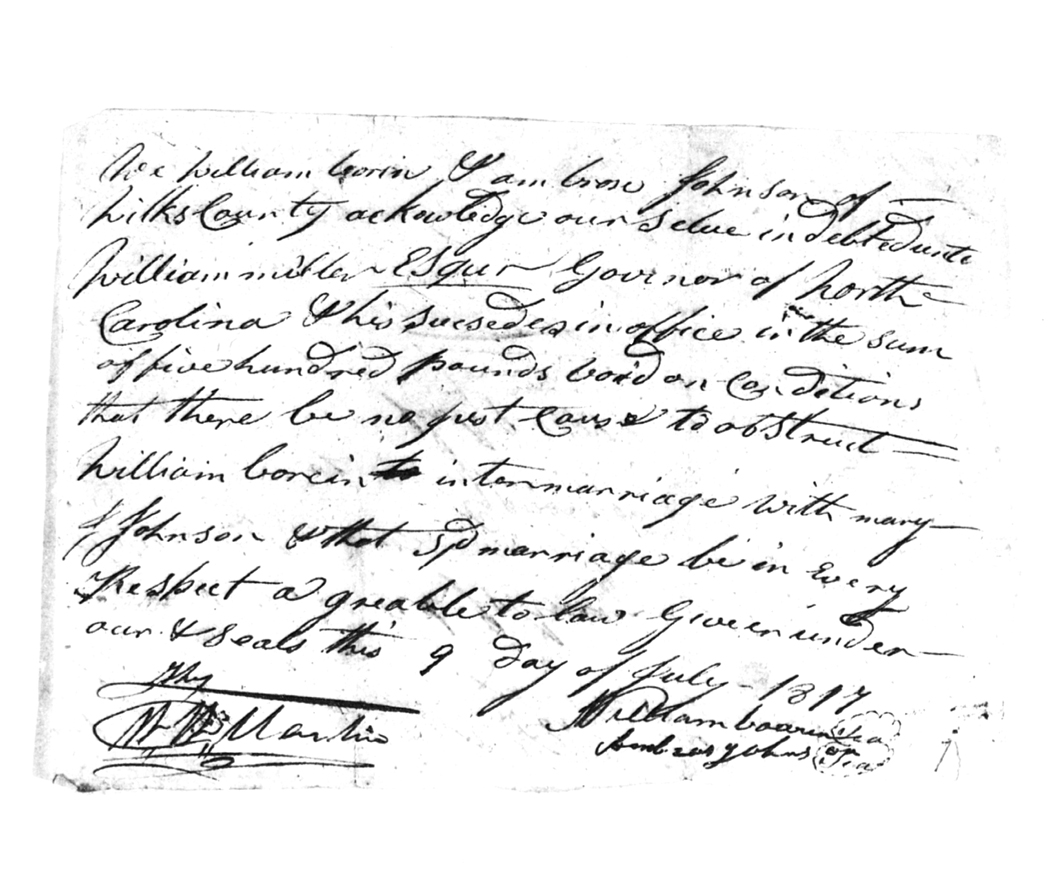 We William borin & ambrose Johnson of
Wilks County acknowledge our selue indebted unto
William miller Esqur Govinor of North
Carolina & his sucseders in office in the sum
of five hundred pounds void on Conditions
that there be no just Cause to obstruct
William borein intermarriage with mary
Johnson & that sd marriage be in Every
Respect a greable to law Given under
our & seals this 9 Day of July 1817
Martin
William boarin Sea
Ambros Johns Sea